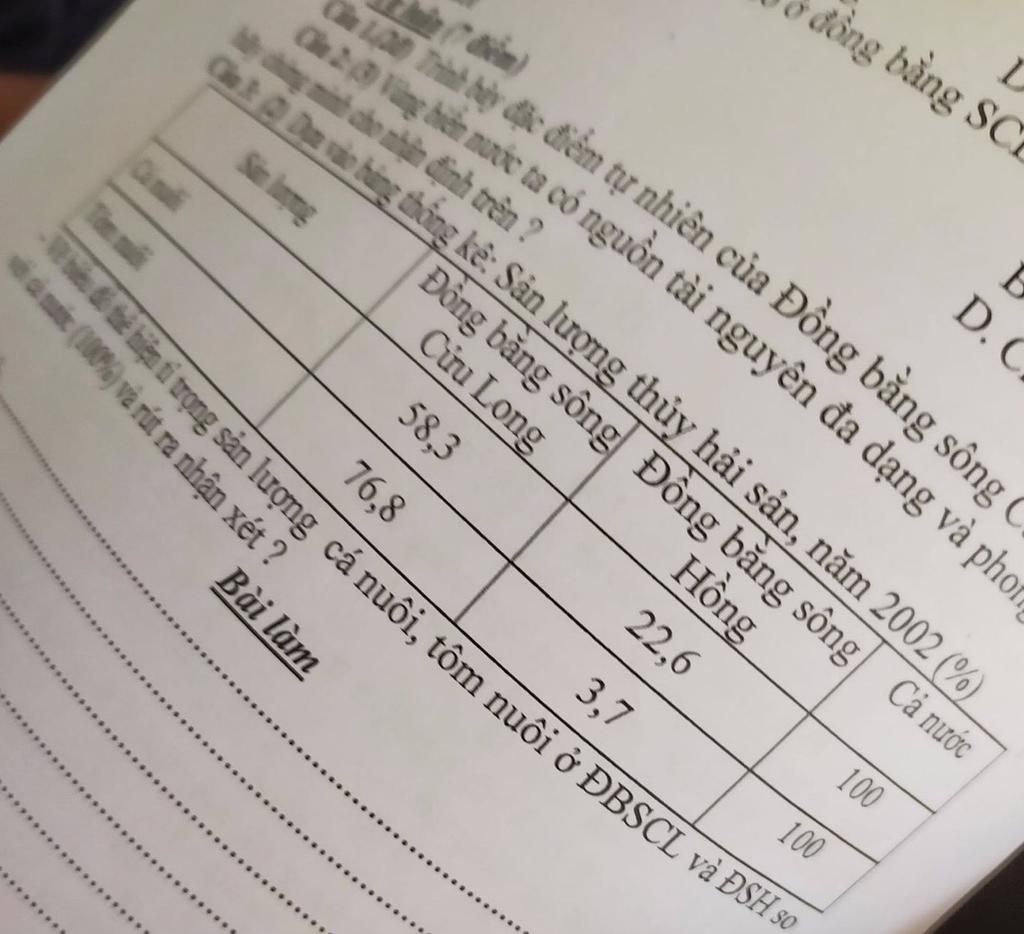 ở đồng bằng SCL
D
B
D. C
Tự luận (7 điểm)
Câu 1. Trình bày đặc điểm tự nhiên của Đồng bằng sông C
Câu 2: (3) Vùng biển nước ta có nguồn tài nguyên đa dạng và phong
hãy chứng minh cho nhận định trên ?
Câu 3: (2) Dựa vào bảng thống kê: Sản lượng thủy hải sản, năm 2002 (%)
Sản lượng
Đồng bằng sông Cửu Long
Đồng bằng sông Hồng
Cả nước
Cá nuôi 58,3 22,6 100
Tôm nuôi 76,8 3,7 100
- Vẽ biểu đồ thể hiện tỉ trọng sản lượng cá nuôi, tôm nuôi ở ĐBSCL và ĐSH so
với cả nước (100%) và rút ra nhận xét ?
Bài làm